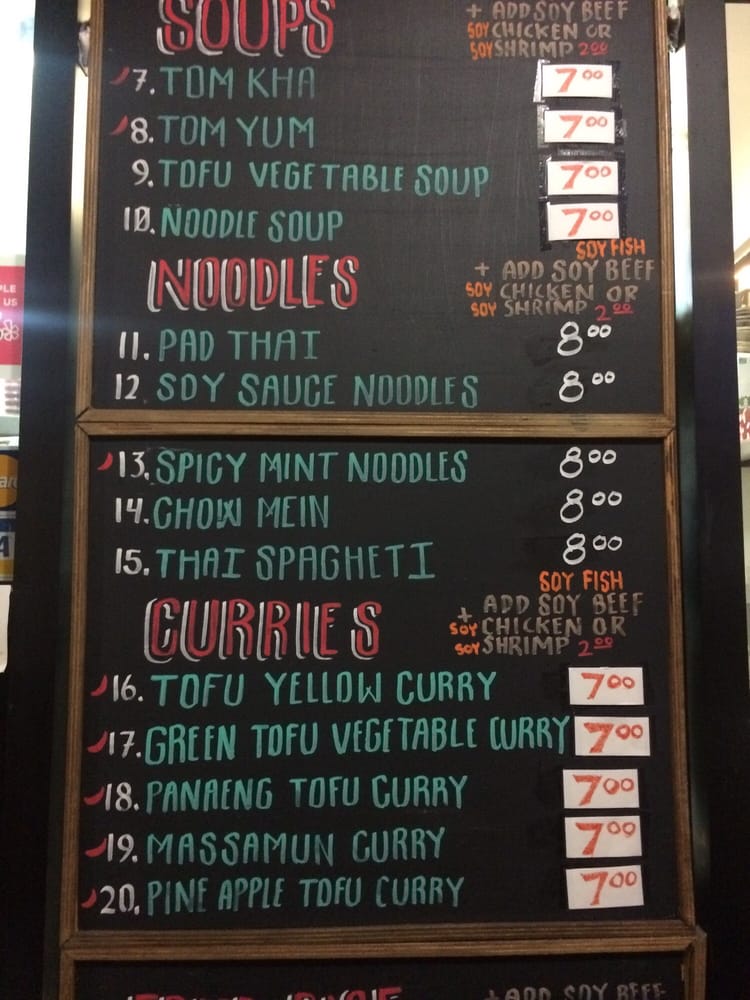 SOUPS
+ ADD SOY BEEF
SOY CHICKEN OR
SOY SHRIMP 2.00
7. TOM KHA 7.00
8. TOM YUM 7.00
9. TOFU VEGETABLE SOUP 7.00
10. NOODLE SOUP 7.00
NOODLES
SOY FISH
+ ADD SOY BEEF
SOY CHICKEN OR
SOY SHRIMP 2.00
11. PAD THAI 8.00
12 SOY SAUCE NOODLES 8.00
13. SPICY MINT NOODLES 8.00
14. CHOW MEIN 8.00
15. THAI SPAGHETI 8.00
CURRIES
SOY FISH
+ ADD SOY BEEF
SOY CHICKEN OR
SOY SHRIMP 2.00
16. TOFU YELLOW CURRY 7.00
17. GREEN TOFU VEGETABLE CURRY 7.00
18. PANAENG TOFU CURRY 7.00
19. MASSAMUN CURRY 7.00
20. PINE APPLE TOFU CURRY 7.00
+ ADD SOY BEEF
PLE
US